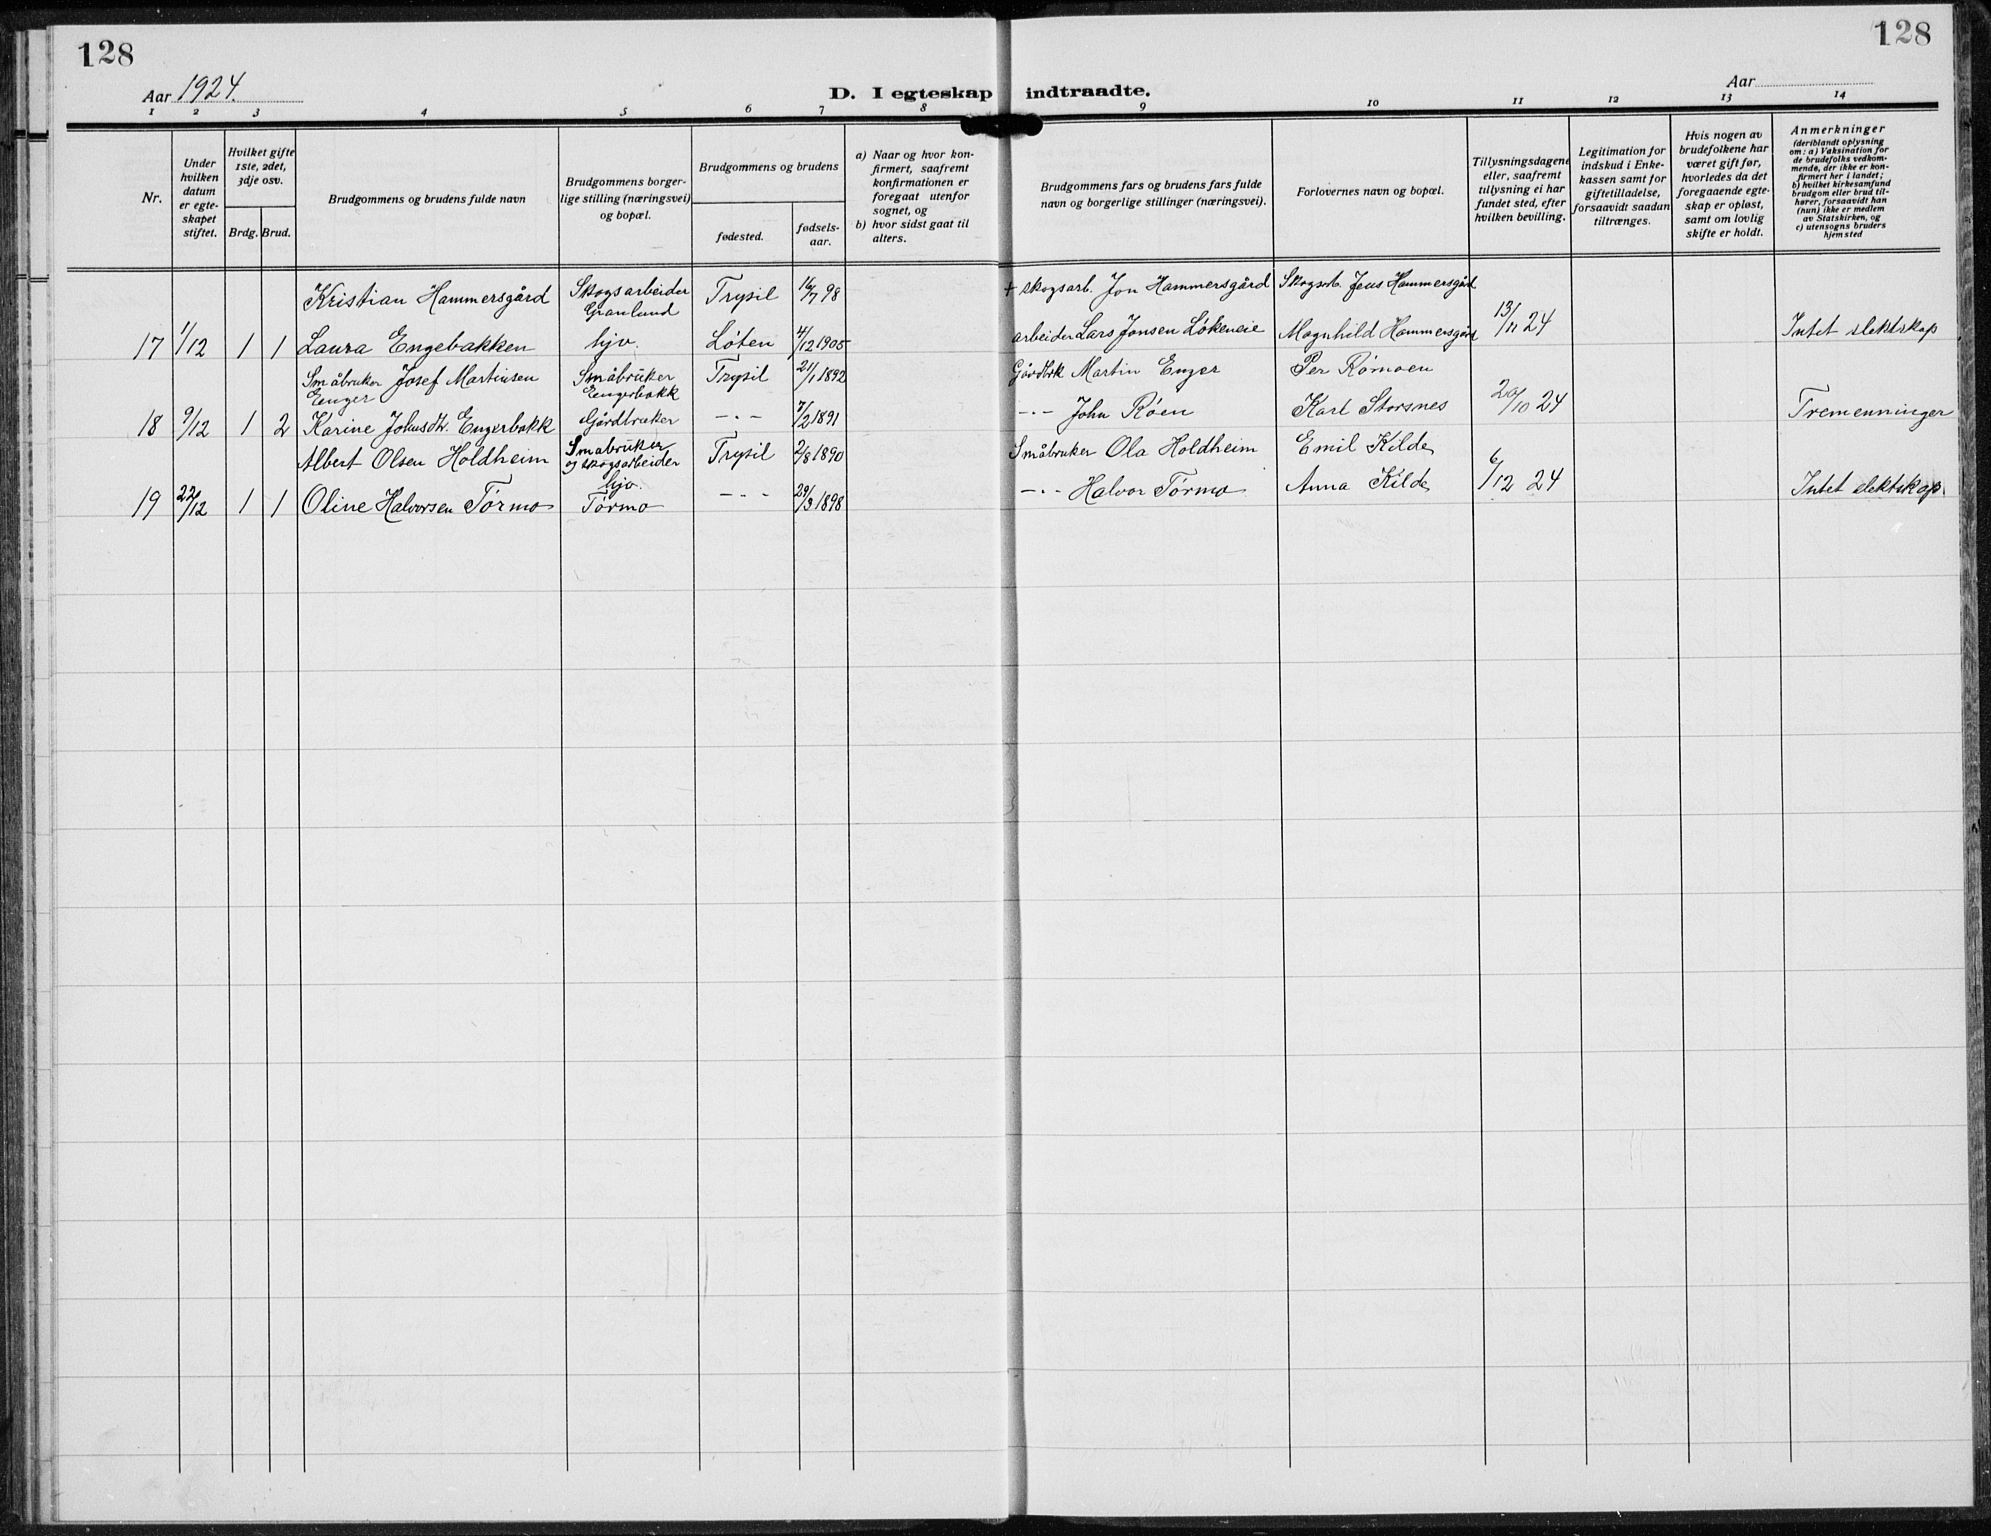 128
128
Aar 1924.
D. I egteskap indtraadte.
Aar
1 2 3 4 5 6 7 8 9 10 11 12 13 14
Nr.
Under
hvilken
datum
er egte-
skapet
stiftet.
Hvilket gifte
1ste, 2det,
3dje osv.
Brdg. Brud.
Brudgommens og brudens fulde navn
Brudgommens borger-
lige stilling (næringsvei)
og bopæl.
Brudgommens og brudens
fødested.
fødsels-
aar.
a) Naar og hvor kon-
firmert, saafremt
konfirmationen er
foregaat utenfor
sognet, og
b) hvor sidst gaat til
alters.
Brudgommens fars og brudens fars fulde
navn og borgerlige stillinger (næringsvei).
Forlovernes navn og bopæl.
Tillysningsdagene
eller, saafremt
tillysning ei har
fundet sted, efter
hvilken bevilling.
Legitimation for
indskud i Enke-
kassen samt for
giftetilladelse,
forsaavidt saadan
tiltrænges.
Hvis nogen av
brudefolkene har
været gift før,
hvorledes da det
foregaaende egte-
skap er opløst,
samt om lovlig
skifte er holdt.
Anmerkninger
(deriblandt oplysning
om: a) Vaksination for
de brudefolks vedkom-
mende, der ikke er kon-
firmert her i landet;
b) hvilket kirkesamfund
brudgom eller brud til-
hører, forsaavidt han
(hun) ikke er medlem
av Statskirken, og
c) utensogns bruders
hjemsted
Kristian Hammersgård Skogsarbeider Trysil 16/7 98 + skogsarb. Jon Hammersgård Skogsarb. Jens Hammersgård
Granlund
17 1/12 1 1 Laura Engebakken hjv. Løten 4/12 1905 arbeider Lars Jonsen Løkeneie Magnhild Hammersgård 13/11 24 Intet slektskap
Småbruker Josef Martinsen Småbruker Trysil 21/1 1892 Gårdbrk Martin Enger Per Rømoen
Enger Engerbakk
18 9/12 1 2 Karine Johnsdtr. Engerbakk Gårdbruker -"- 7/2 1891 -"- John Røen Karl Storsnes 20/10 24 Tremenninger
Albert Olsen Holdheim Småbruker Trysil 2/8 1890 Småbruker Ola Holdheim Emil Kilde
og skogsarbeider
hjv.
19 22/12 1 1 Oline Halvorsen Tørmo Tørmo -"- 29/3 1898 -"- Halvor Tørmo Anna Kilde 6/12 24 Intet slektskap.